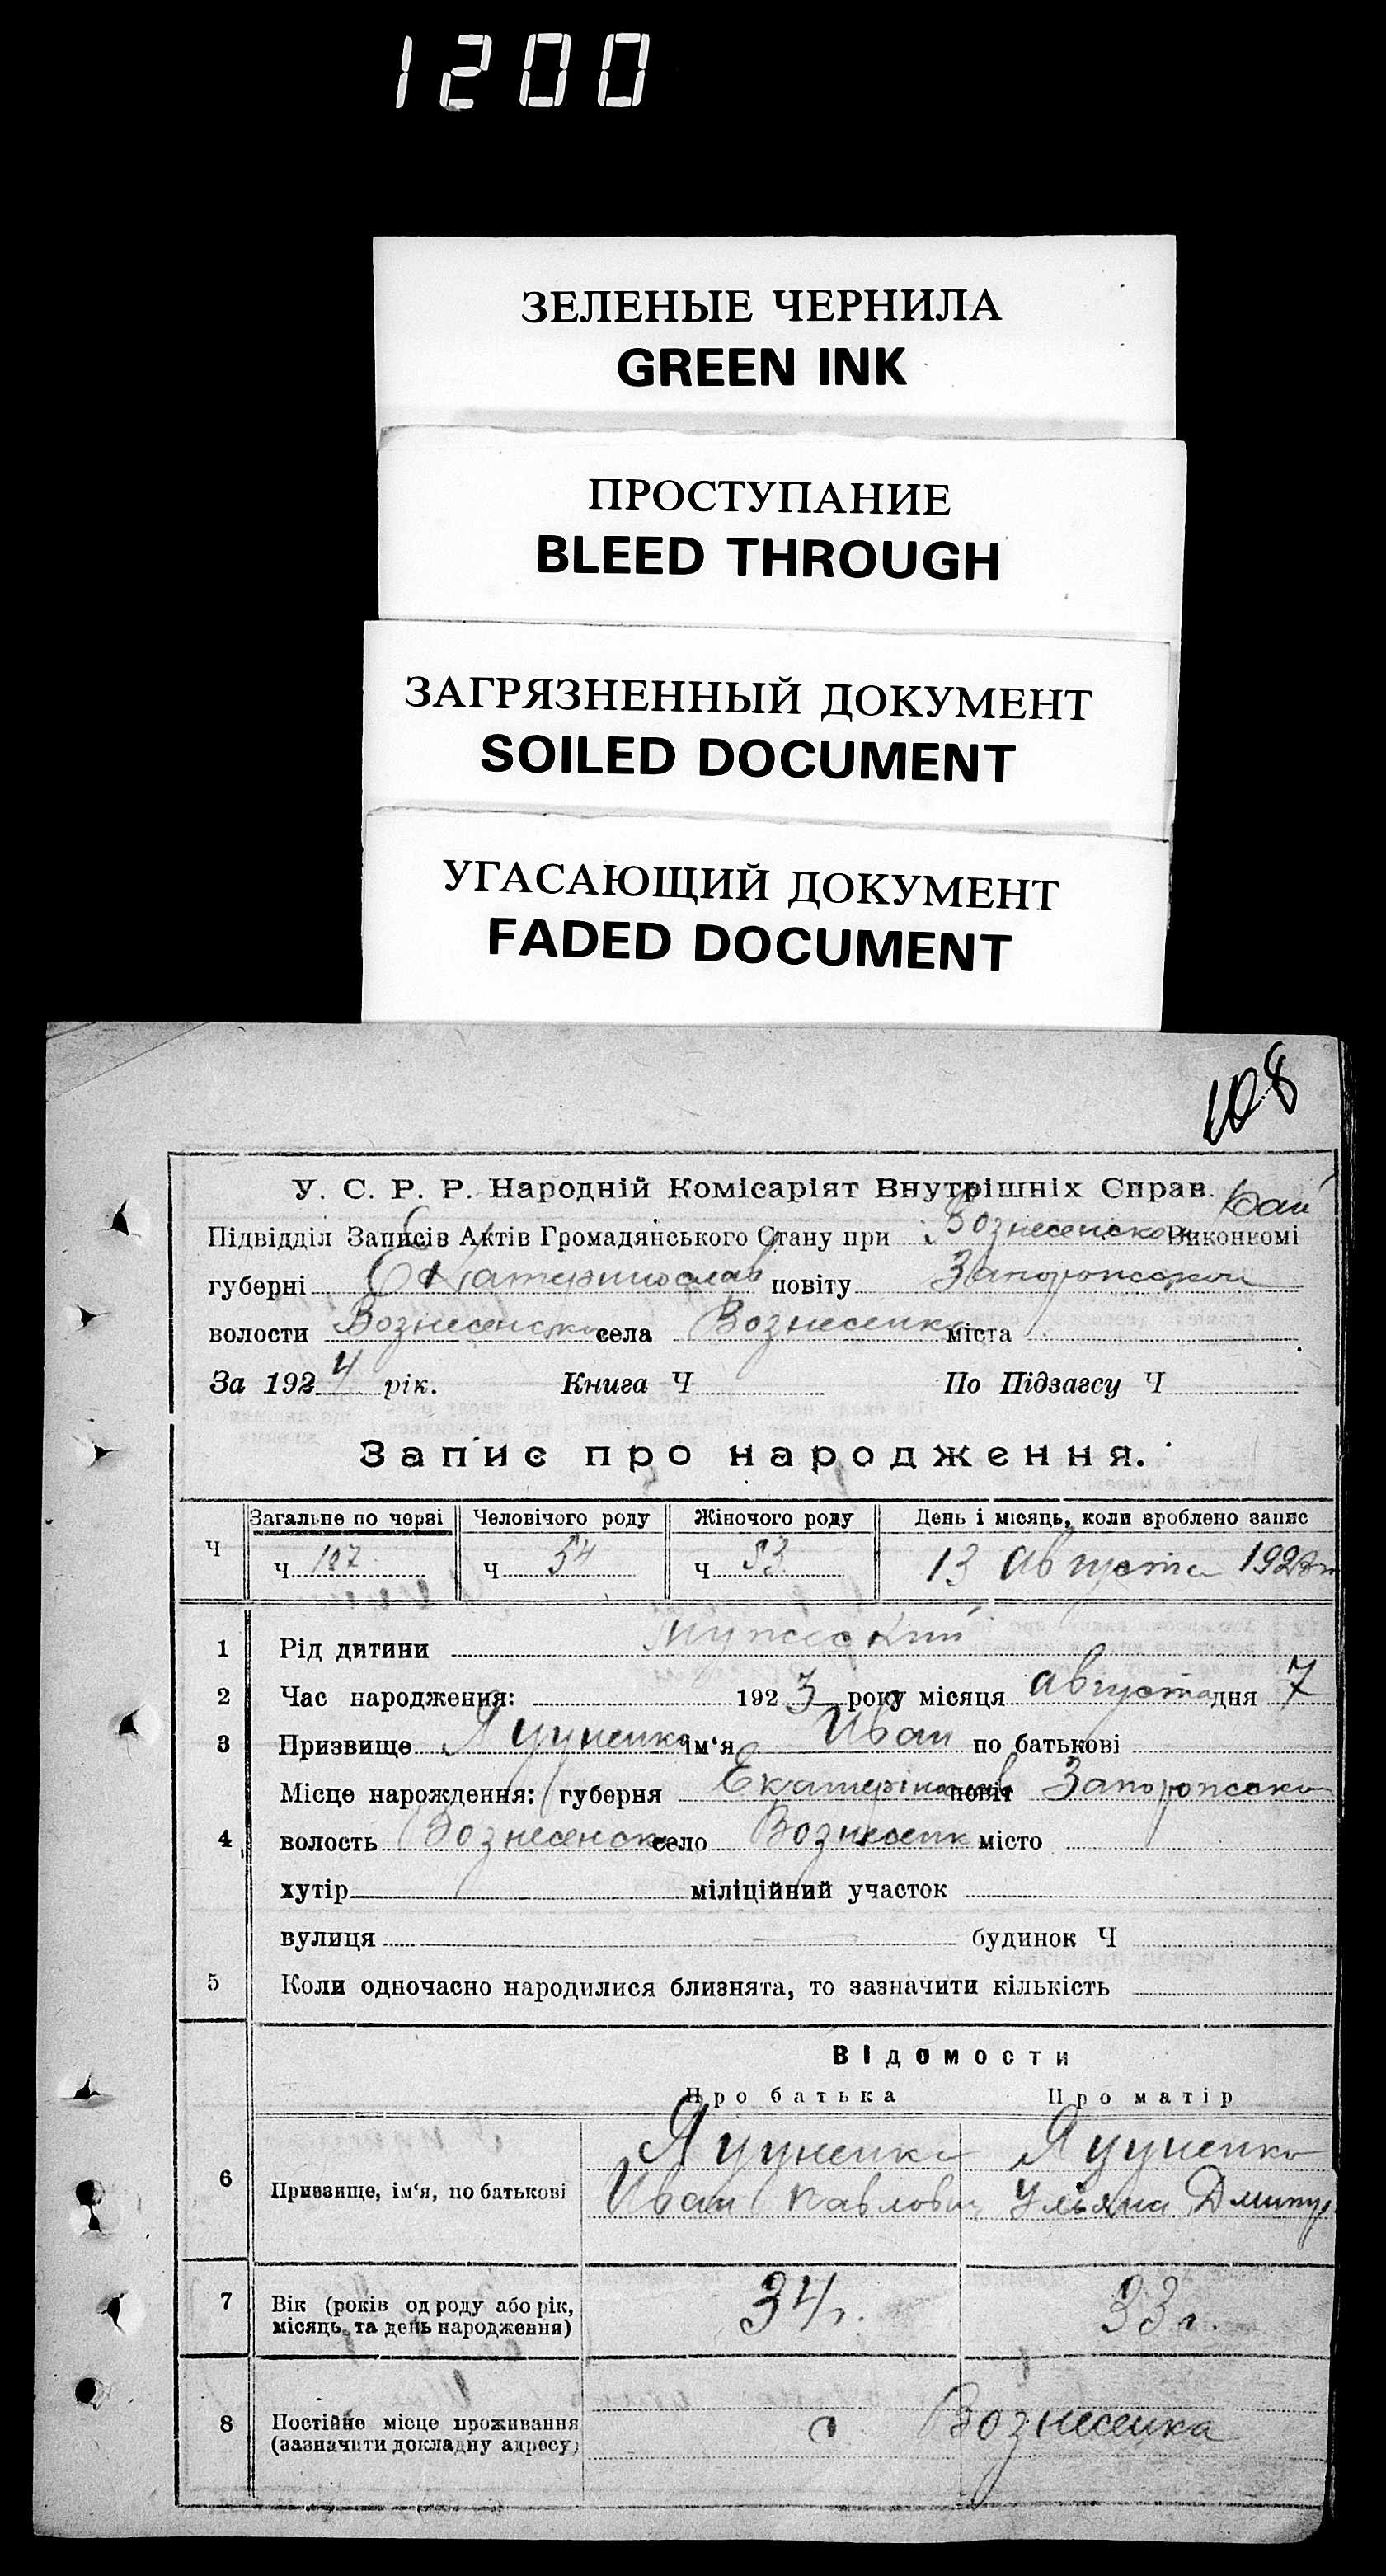 1200
ЗЕЛЕНЫЕ ЧЕРНИЛА
GREEN INK
ПРОСТУПАНИЕ
BLEED THROUGH
ЗАГРЯЗНЕННЫЙ ДОКУМЕНТ
SOILED DOCUMENT
УГАСАЮЩИЙ ДОКУМЕНТ
FADED DOCUMENT
108
У. С. Р. Р. Народній Комісаріят Внутрішніх Справ.
Підвідділ Записів Актів Громадянського Стану при Вознесенском Рай Виконкомі
губерні Екатеринослав повіту Запорожской
волости Вознесенска села Вознесенка міста
За 1924 рік. Книга Ч По Підзагсу Ч
Запис про народження.
Ч Загальне по черзі Человічого роду Жіночого роду День і місяць, коли зроблено запис
Ч 107 Ч 54 Ч 53 13 августа
1 Рід дитини Мужеский
2 Час народження: 1923 року місяця августа дня 7
3 Призвище ім'я Иван по батькові
Місце нарождення: губерня повіт Запорожска
4 волость Вознесенска село Вознесенк місто
хутір міліційний участок
вулиця будинок Ч
5 Коли одночасно народилися близнята, то зазначити кількість
Відомости
Про батька Про матір
6 Призвище, ім'я, по батькові
Иван Павлович Ульяна Дмитр
7 Вік (років од роду або рік, 34 г. 33 г.
місяць та день народження)
8 Постійне місце проживання с Вознесенка
(зазначити докладну адресу)